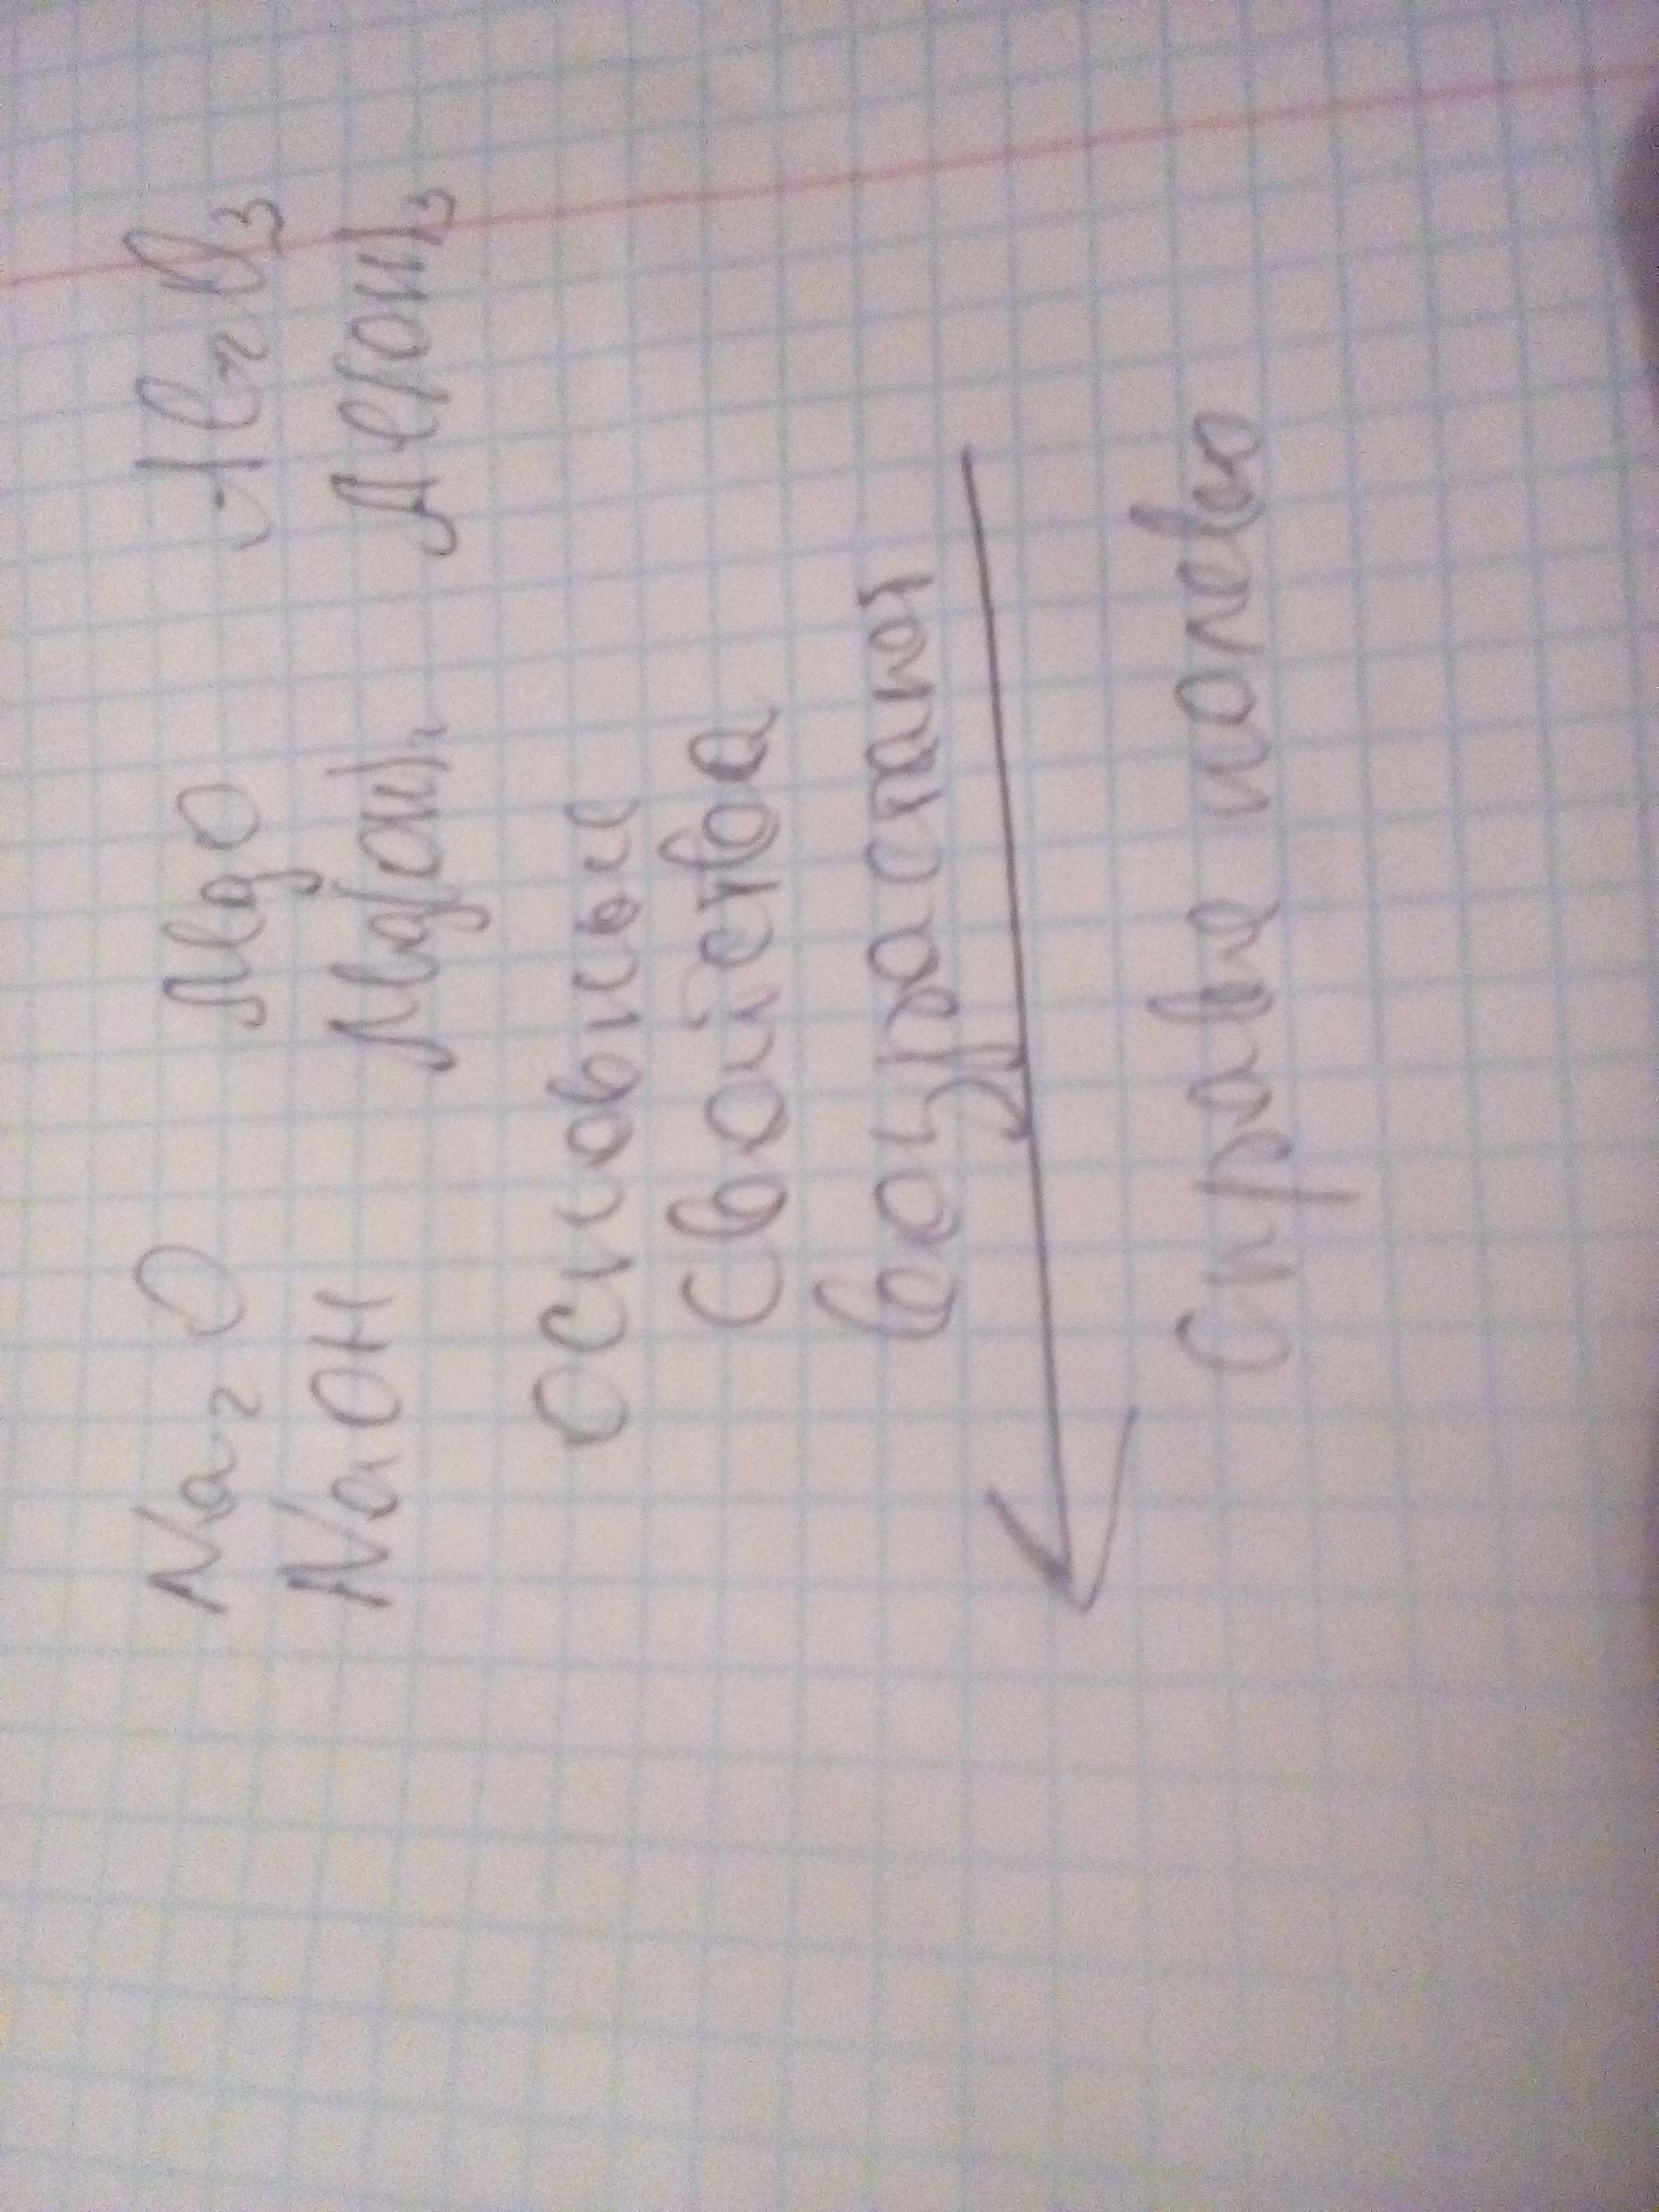 Na₂O MgO Al₂O₃
NaOH Mg(OH)₂ Al(OH)₃
основные
свойства
возрастают
справа налево